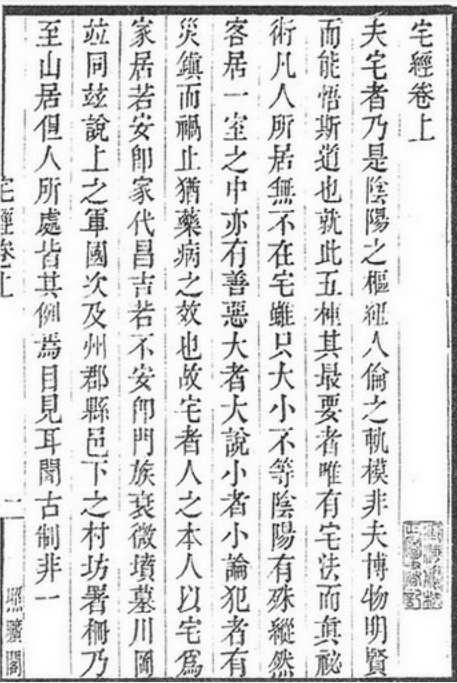 宅經卷上
夫宅者乃是陰陽之樞紐人倫之軌模非夫博物明賢
而能悟斯道也就此五種其最要者唯有宅法而眞祕
術凡人所居無不在宅雖只大小不等陰陽有殊縱然
客居一室之中亦有善惡大者大說小者小論犯者有
災鎮而禍止猶藥病之效也故宅者人之本人以宅爲
家居若安卽家代昌吉若不安卽門族衰微墳墓川岡
竝同兹說上之軍國次及州郡縣邑下之村坊署柵乃
至山居但人所處皆其例焉目見耳聞古制非一
宅經卷上
二
照曠閣